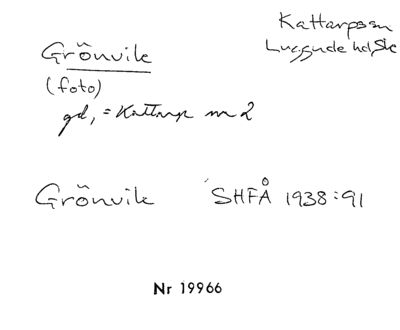 Kattarps sn
Luggude hd, Sk
Grönvik
(foto)
gd, = Kattarp nr 2
Grönvik SHFÅ 1938:91
Nr 19966